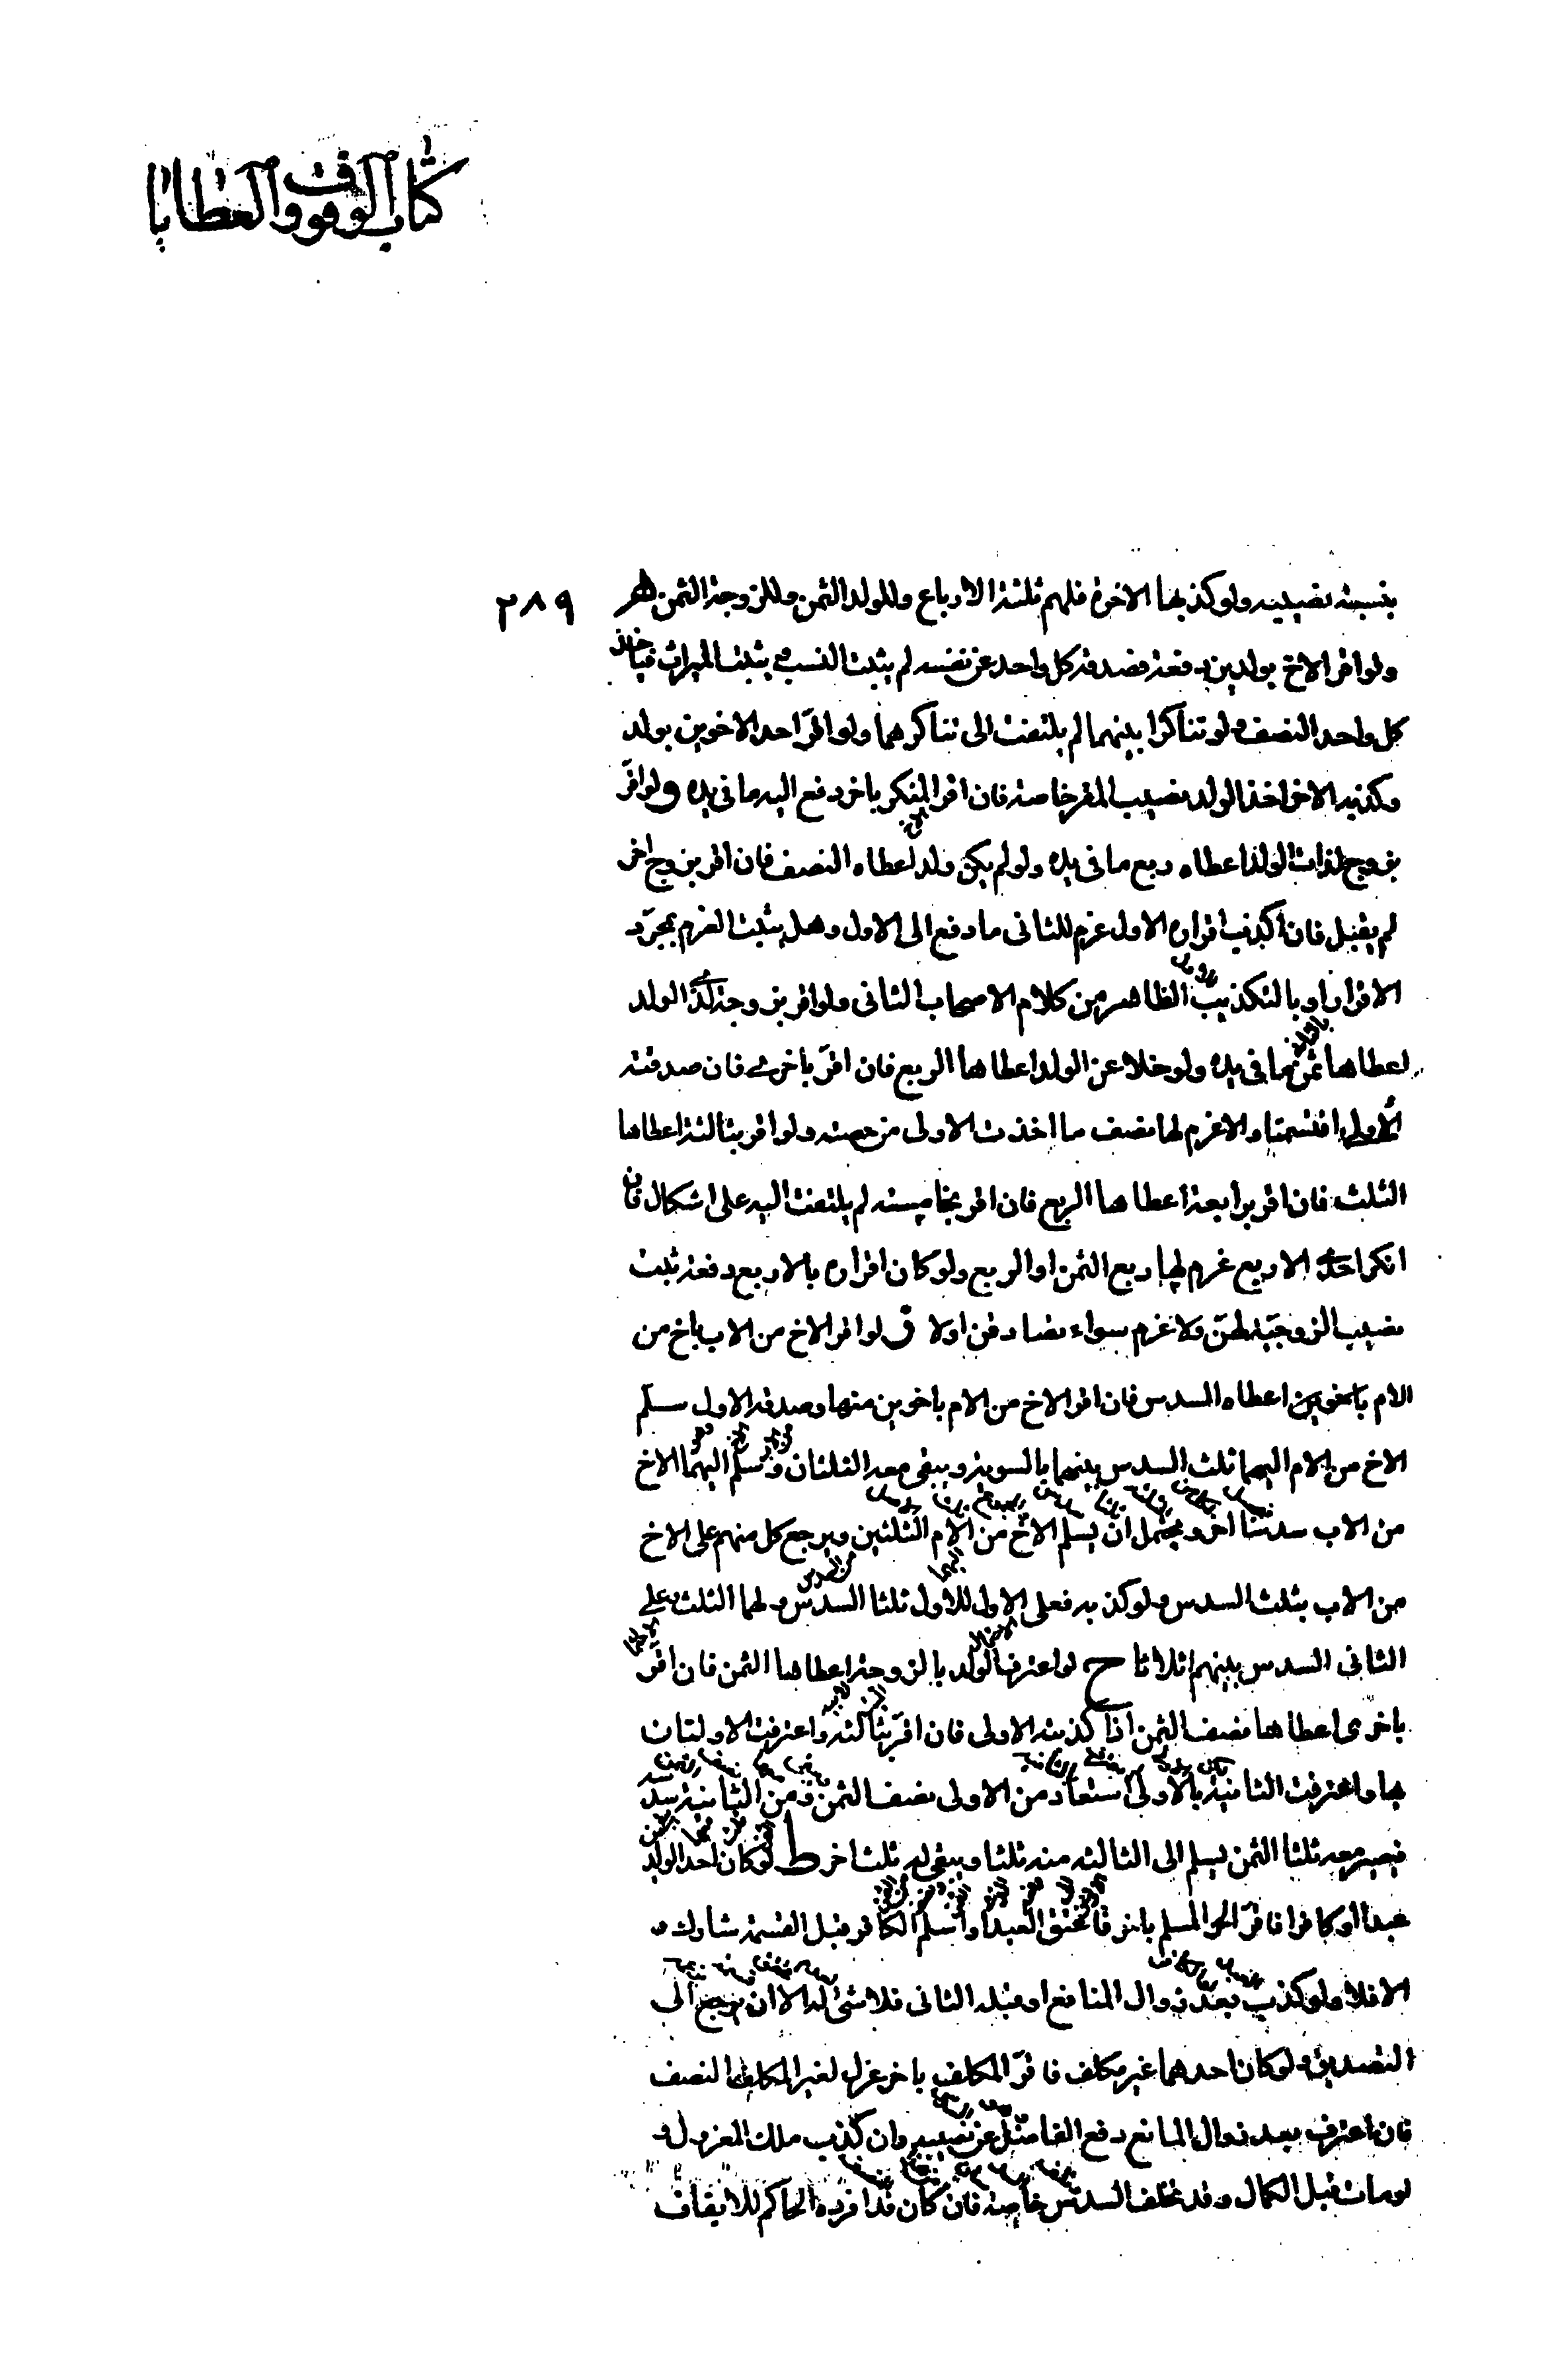 كتاب الوقوف والعطايا
٢٨٩
بنسبة نصيبيه ولو كذبها الاخوة فلهم ثلثة الارباع وللولد الثمن وللزوجة الثمن
ولو اقر الاخ بولدين دفعة فصدقه كل واحد عن نفسه لم يثبت النسب ويثبت الميراث فياخذ
كل واحد النصف ولو تناكرا بينهما لم يلتفت الى تناكرهما ولو اقرّ احد الاخوين بولد
وكذبه الاخر اخذ الولد نصيب المقر خاصة فان اقر المنكر باخر دفع اليه ما في يده ولو اقرّ
بزوج لذات الولد اعطاه ربع ما في يده ولو لم يكن ولد اعطاه النصف فان اقر بزوج اخر
لم يقبل فان اكذب اقراره الاول غرم للثانى ما دفع الى الاول وهل يثبت الغرم بمجرّد
الاقرار او بالتكذيب الظاهر من كلام الاصحاب الثانى ولو اقر بزوجة لذى الولد
اعطاها ثمن ما في يده ولو خلا عن الولد اعطاها الربع فان اقرّ باخرى فان صدقته
الاولى اقتسمتا والا غرم لها نصف ما اخذت الاولى من حصته ولو اقر بثالثة اعطاها
الثلث فان اقر برابعة اعطاها الربع فان اقر بخامسة لم يلتفت اليه على اشكال فان
انكر احدى الاربع غرم لها ربع الثمن او الربع ولو كان اقراره بالاربع دفعة ثبت
نصيب الزوجية لهنّ ولا غرم سواء تصادقن اولا لو اقر الاخ من الاب باخ من
الام باخوين اعطاه السدس فان اقر الاخ من الام باخوين منها وصدقه الاول سلّم
الاخ من الام اليهما ثلث السدس بينهما بالسوية ويبقى معه الثلثان وسلم اليهما الاخ
من الاب سدسا اخر ويحتمل ان يسلم الاخ من الام الثلثين ويرجع كل منهم على الاخ
من الاب بثلث السدس ولو كذبه فعلى الاول للاول ثلثا السدس ولهما الثلث وعلى
الثانى السدس بينهم اثلاثا ح لو اعترف الولد بالزوجة اعطاها الثمن فان اقرّ
باخرى اعطاها نصف الثمن اذا كذبته الاولى فان اقرّ بثالثة واعترفت الاولتان
بها واعترفت الثانية بالاولى استعاد من الاولى نصف الثمن ومن الثانية سدسه
فيصير معه ثلثا الثمن يسلم الى الثالثة منه ثلثا ويبقى له ثلث اخر ط لو كان احد الولدين
عبدا او كافرا فاقرّ الحر المسلم باخر فاعتق العبد او اسلم الكافر قبل القسمة شارك و
الا فلا ولو كذب بعد زوال المانع او قبله الثانى فلا شئ له الا ان يرجع الى
التصديق ولو كان احدهما غير مكلف فاقرّ المكلف باخر عزل لغير المكلف النصف
فان اعترف بعد زوال المانع دفع الفاضل عن نصيبه وان كذب ملك المعزول و
لو مات قبل الكمال وقد تخلف السدس خاصة فان كان قد افرده الحاكم للايقاف